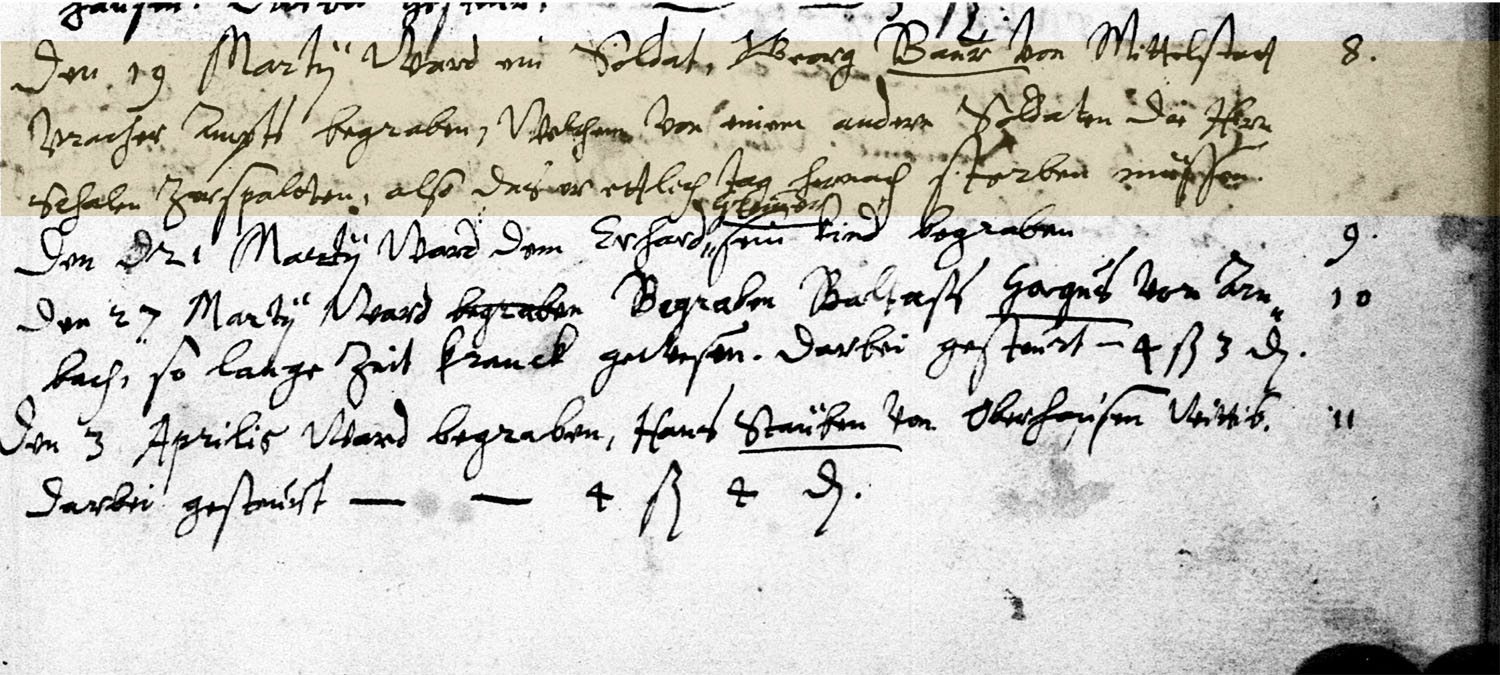 Den 19 Martÿ Ward ein Soldat, Georg Baur von Mittelstatt 8.
Vracher Ampts begraben, Welchem von einem andern Soldaten die Hirn
Schalen Zerspaltten, also das er ettlich tag hernach sterben müssen.
Den 21 Martÿ Ward dem Erhard sein kind begraben 9.
Den 27 Martÿ Ward begraben Begraben Baltass von Arn„ 10
bach, so lange Zeit kranck gewesen. Darbei gesteurt — 4 ß 3 d.
Den 3 Aprilis Ward begraben, Hans Stauben von Oberhausen Wittib. 11
Darbei gesteurt — — 4 ß 4 d.